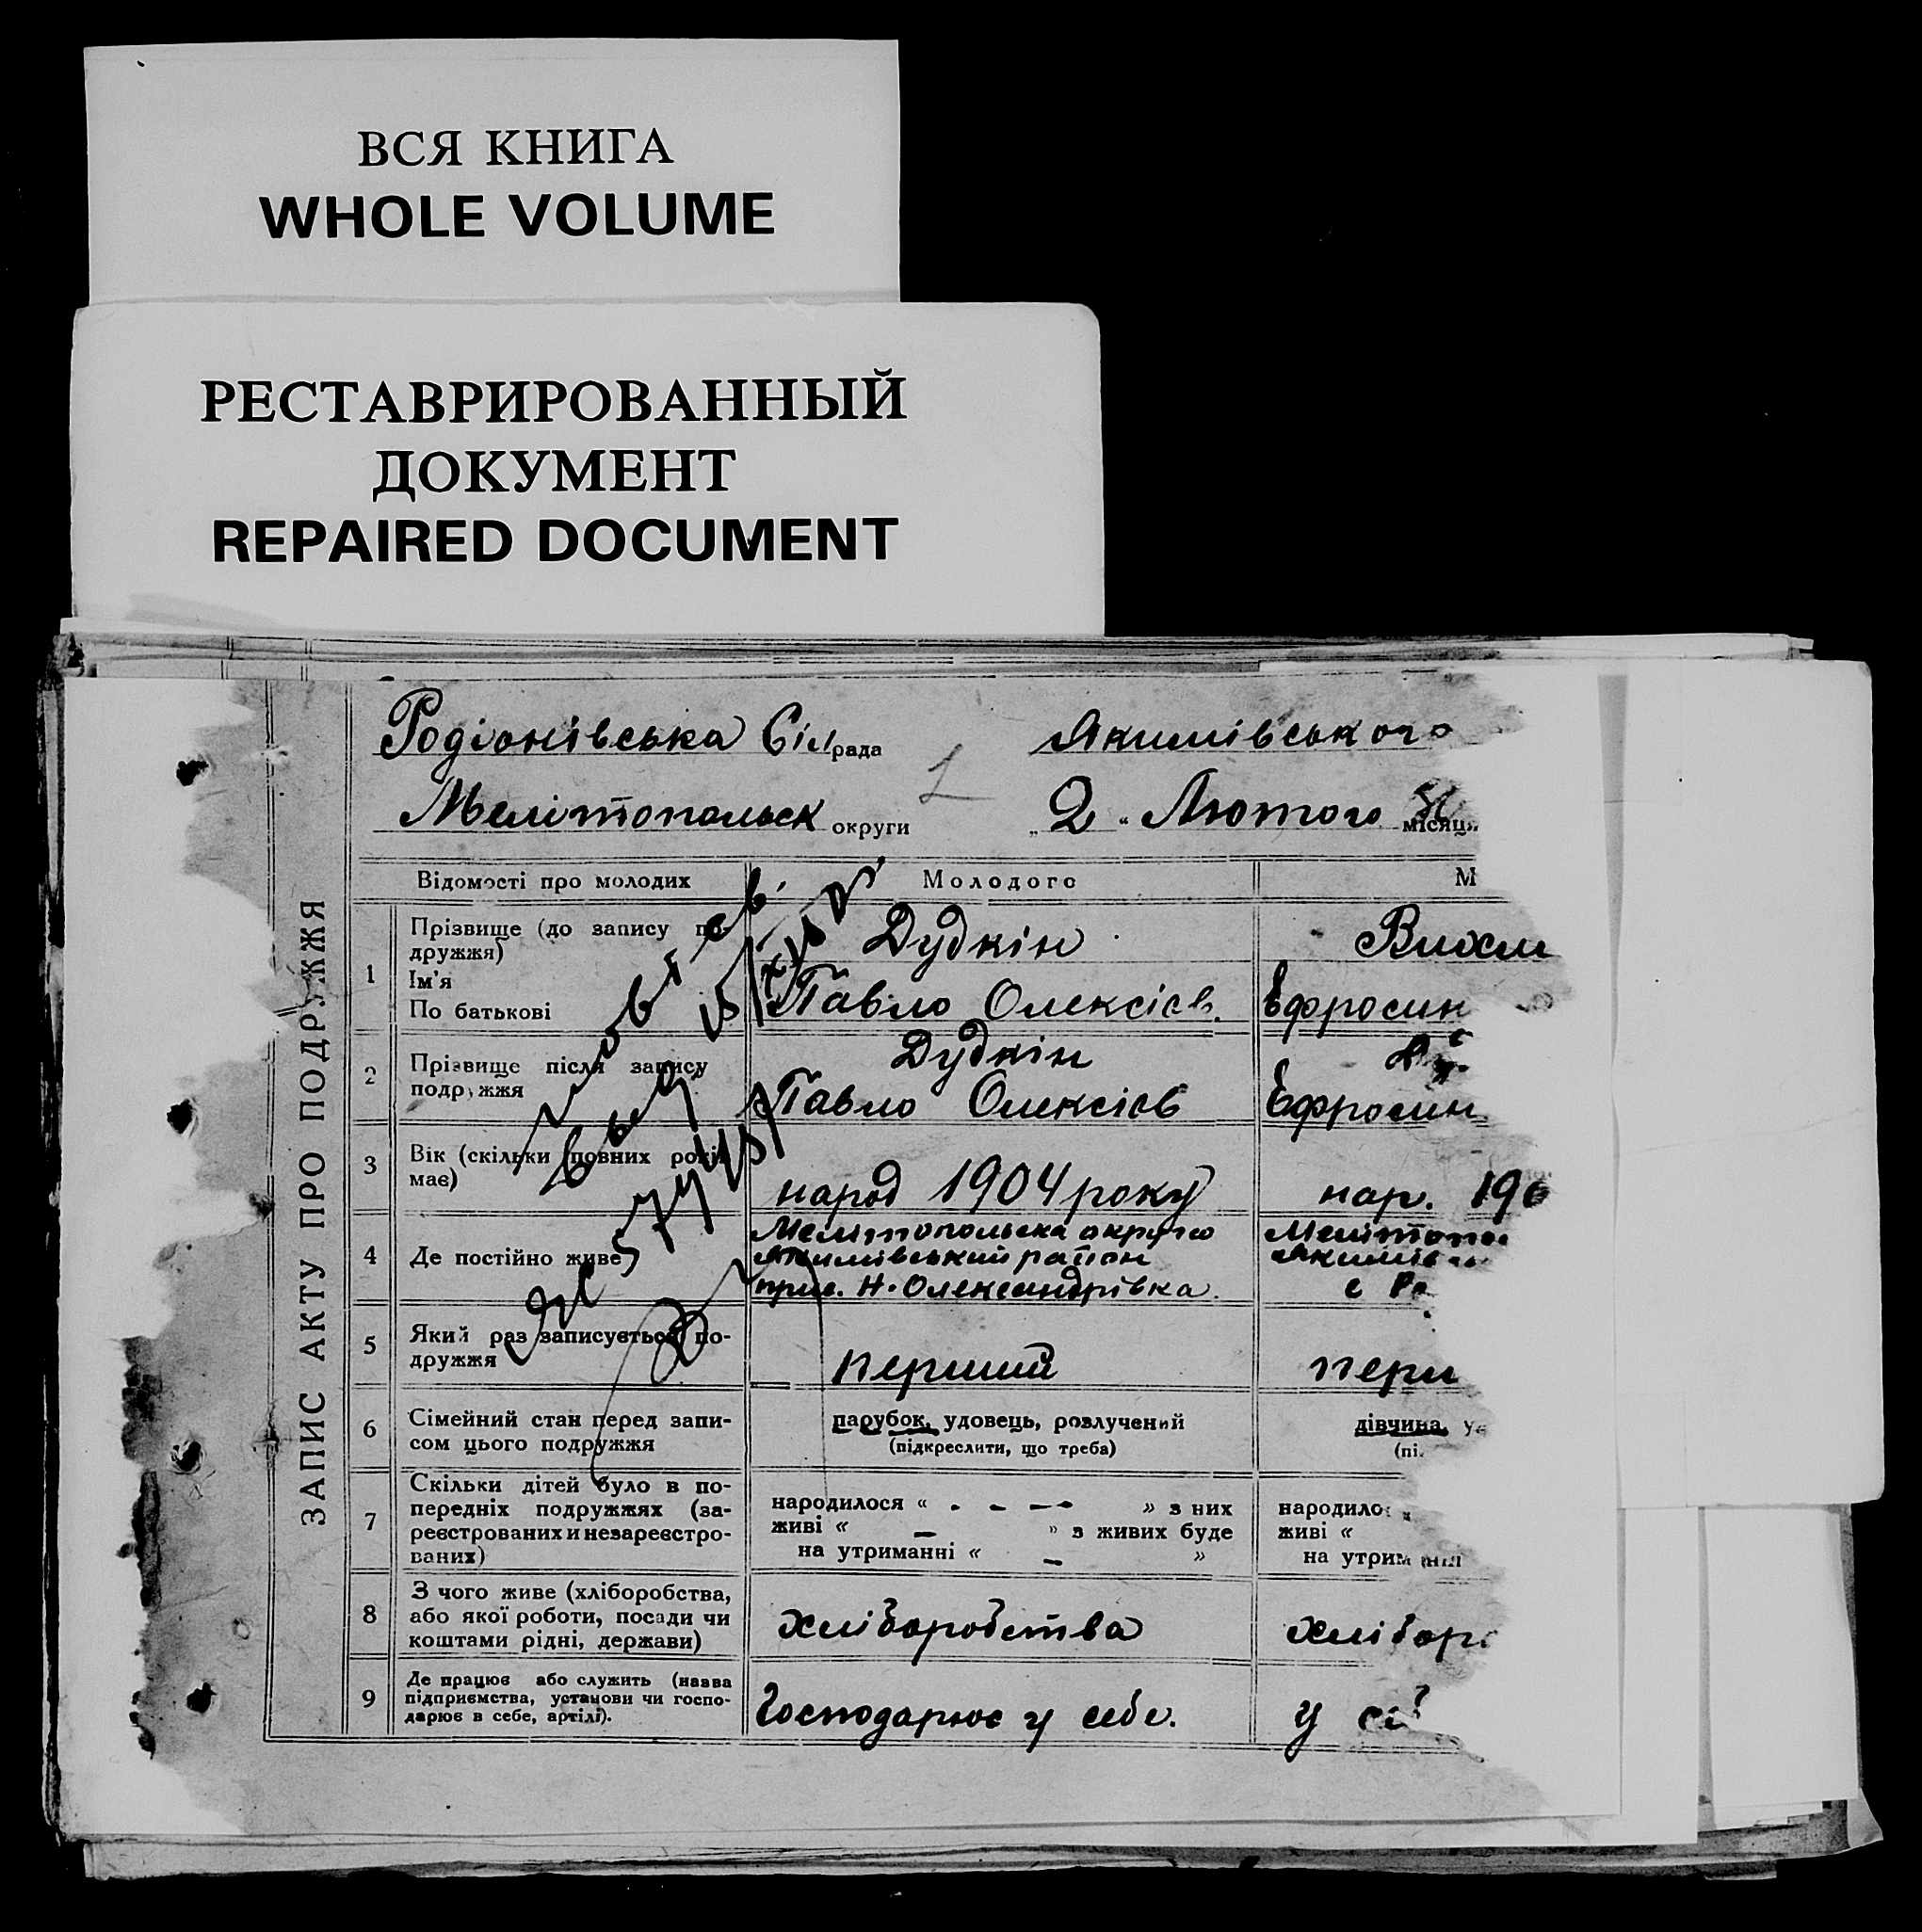 ВСЯ КНИГА
WHOLE VOLUME
РЕСТАВРИРОВАННЫЙ
ДОКУМЕНТ
REPAIRED DOCUMENT
ЗАПИС АКТУ ПРО ПОДРУЖЖЯ
Родіонівська Сілрада Якимівського
1
Мелітопольськ округи „ 2 “ Лютого місяця
Відомості про молодих Молодого М
1
Прізвище (до запису по-
дружжя)
Ім'я
По батькові
Дудкін
Павло Олексієв.
Ефросин
2
Прізвище після запису
подружжя
Дудкін
Павло Олексієв
Ефросин
3
Вік (скільки повних років
має)
народ 1904 року
нар. 190
4
Де постійно живе
Мелітопольска округа
Якимівський район
прис. Н-Олександрівка.
Мелітопо
Якимів
с Ро
5
Який раз записується по-
дружжя
перший
перш
6
Сімейний стан перед запи-
сом цього подружжя
парубок, удовець, розлучений
(підкреслити, що треба)
дівчина, уд
(пі
7
Скільки дітей було в по-
передніх подружжях (за-
реєстрованих и незареєстро-
ваних)
народилося « - - — » з них
живі « — » з живих буде
на утриманні « — »
народило
живі «
на утриманні
8
З чого живе (хліборобства,
або якої роботи, посади чи
коштами рідні, держави)
хліборобства
хлібор
9
Де працює або служить (назва
підприємства, установи чи госпо-
дарює в себе, артілі).
Господарює у себе.
у себ